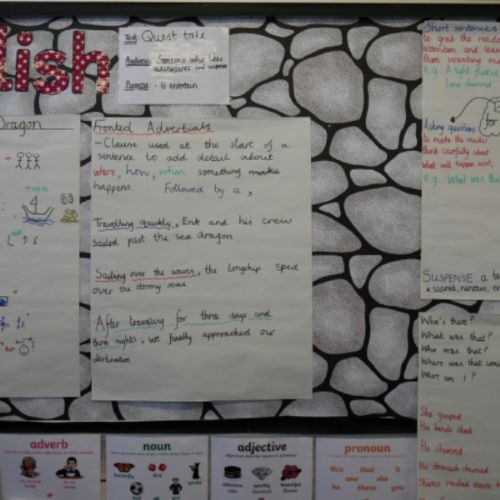 lish
Text: Quest tale
Audience: Someone who likes
adventures and suspense
Purpose: - to entertain
Dragon
THEN
Fronted Adverbials
- Clause used at the start of a
sentence to add detail about
where, how, when something
happens. Followed by a ,
Travelling quickly, Erik and his crew
sailed past the sea dragon
Sailing over the waves, the longship sped
over the stormy seas
After travelling for three days and
three nights, we finally approached our
destination
Short sentences
to grab the reader
attention and leave
them wanting mo
e.g. A light flicked
Lara shivered
Asking questions
to make the reader
think carefully about
what will happen next,
e.g. What was tha
for
SUSPENSE: a te
Who's there?
What was that?
Who was that?
Where was that com
Where am I?
She gasped
Her hands shook
He shivered
His stomach churned
adverb
noun
butterfly
adjective
delicious
beautiful
pronoun
this that it
one she
he those you